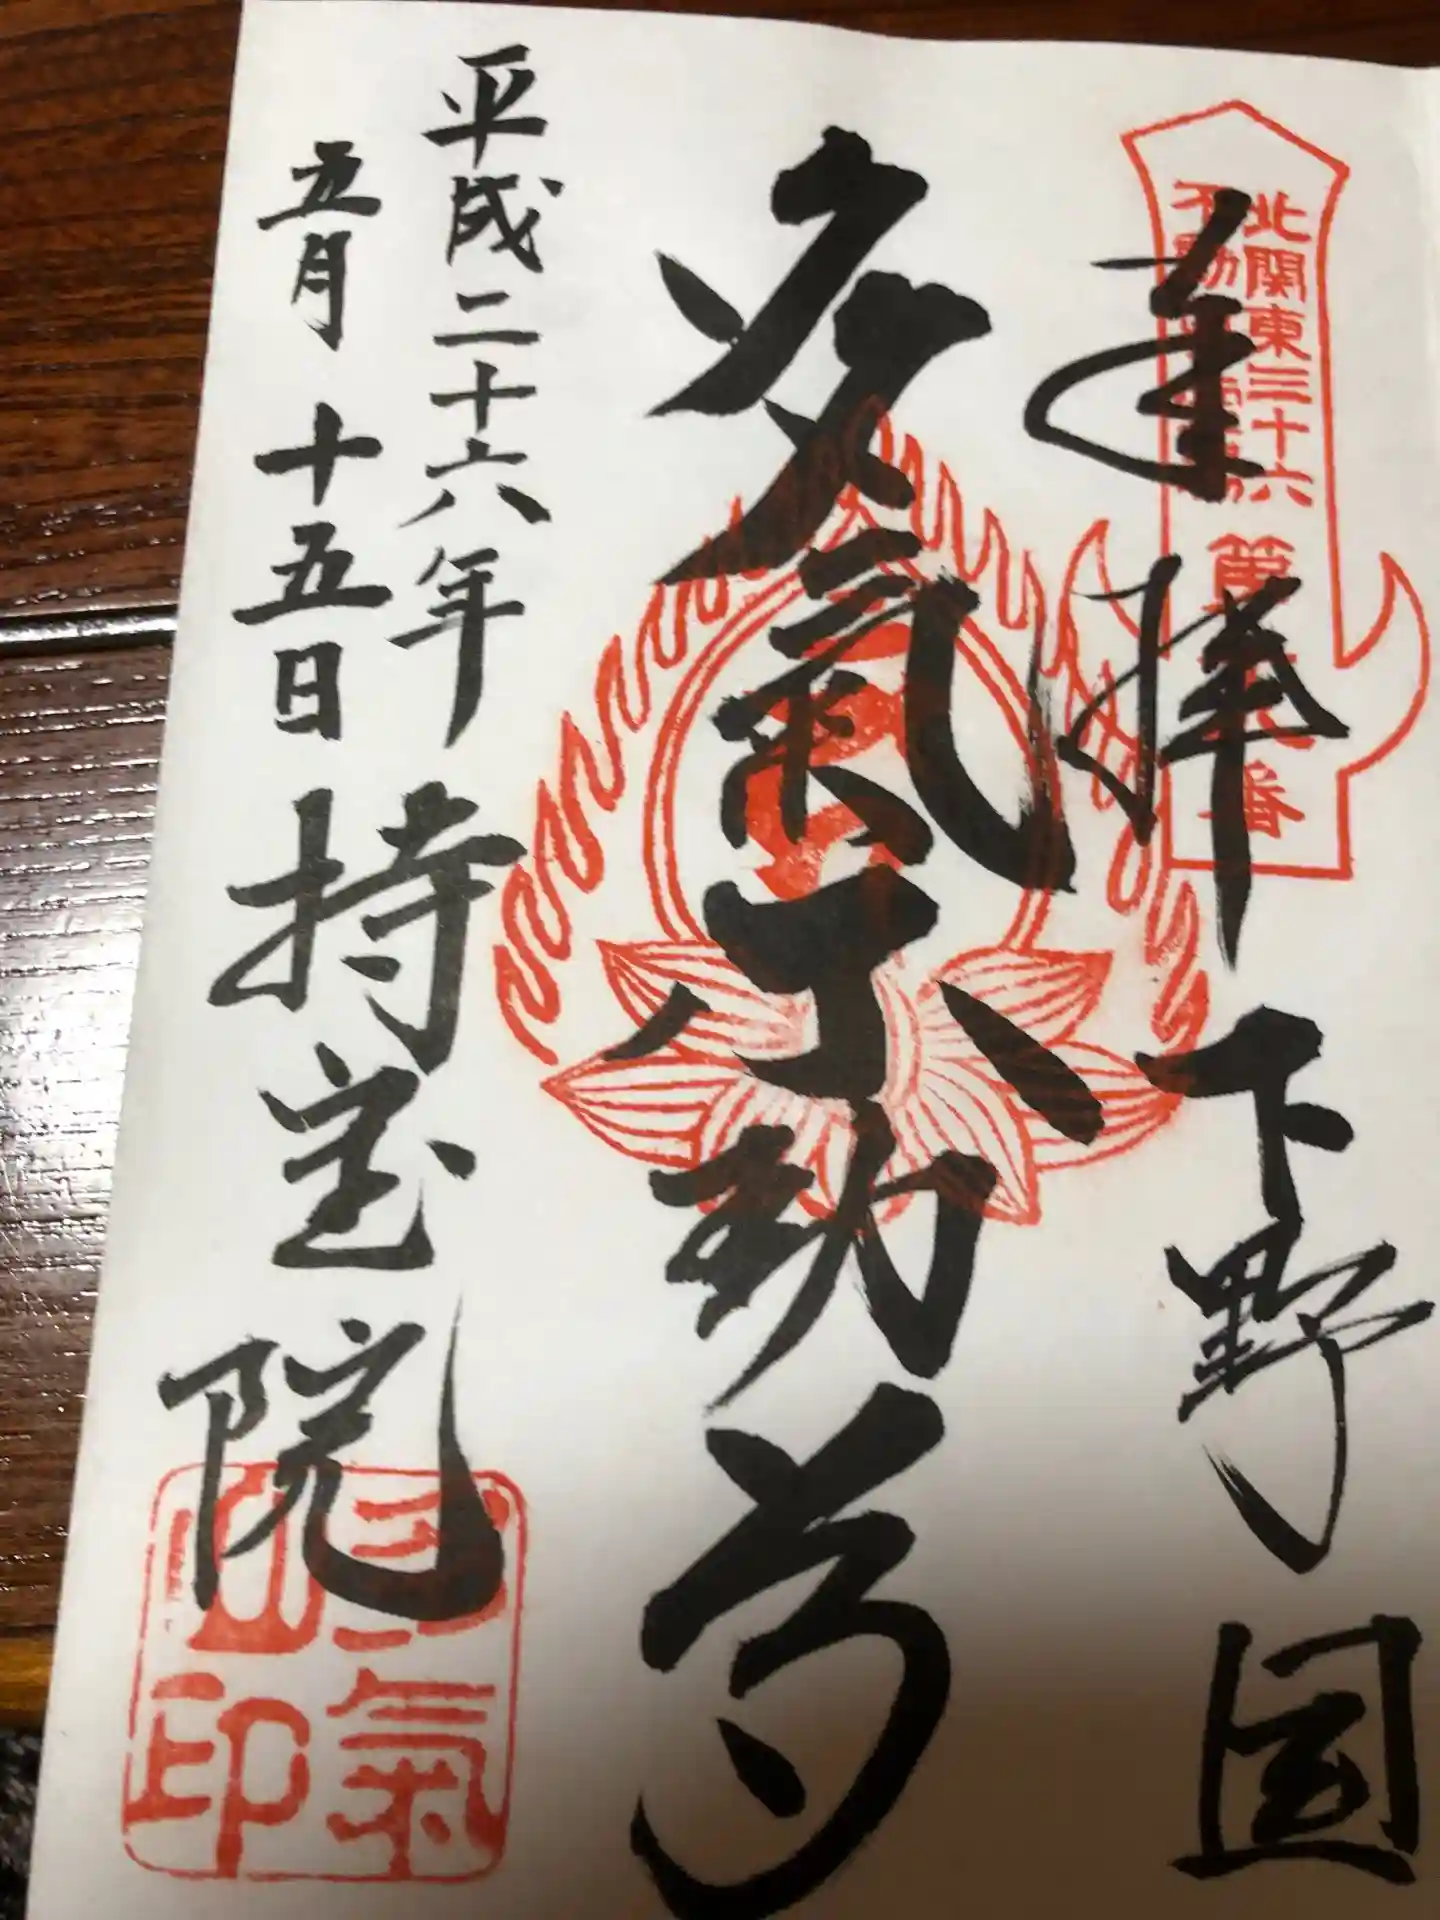 奉拝 下野国
北関東三十六
不動
第
番
多氣不動尊
平成二十六年
五月十五日
持宝院
氣
山
印